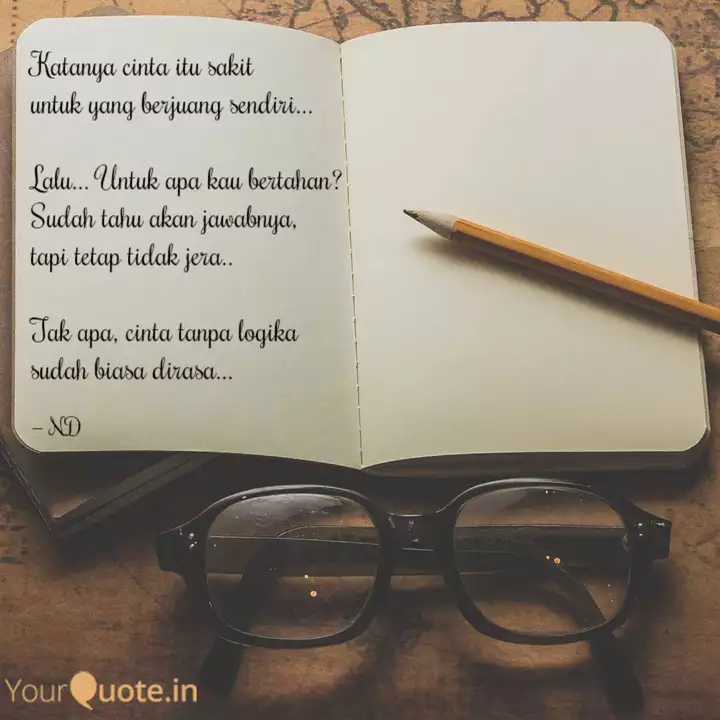 Katanya cinta itu sakit
untuk yang berjuang sendiri...
Lalu... Untuk apa kau bertahan?
Sudah tahu akan jawabnya,
tapi tetap tidak jera..
Tak apa, cinta tanpa logika
sudah biasa dirasa...
– ND
YourQuote.in